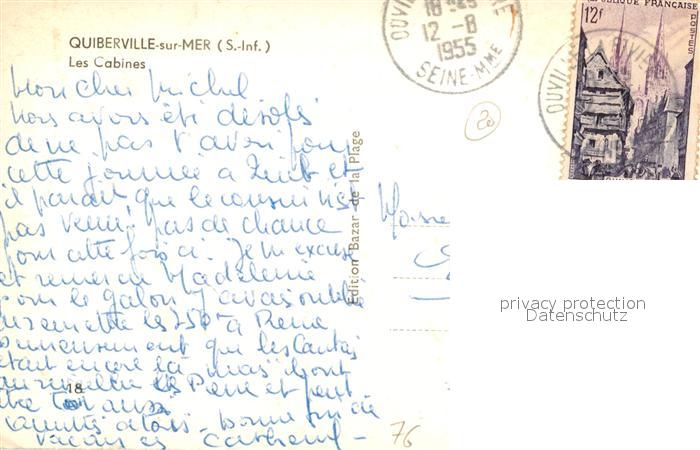 QUIBERVILLE-sur-MER (S.-Inf.)
Les Cabines
Mon cher Michel
Nous avons été désolés
de ne pas t'avoir pour
cette journée à et
il parait que le cousin n'est
pas venu. pas de chance
pour cette fois ci. Je m'excuse
et remercie Madeleine
pour le galon j'avais oublié
de remettre les 250 à Pierre
heureusement que les
était encore là mais
Pierre et peut
être Toi aussi
bonne fin de
vacances
Edition Bazar de la Plage
18
Monsieur
20
76
OUVILLE
18
12-8
1955
SEINE-MME
RÉPUBLIQUE FRANÇAISE
12F
POSTES
privacy protection
Datenschutz